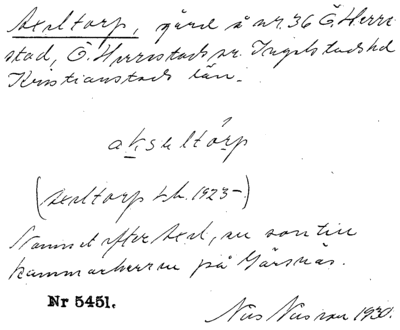 Axeltorp, gård å nr. 36 Ö. Herre-
stad, Ö. Herrestads sn. Ingelstads hd
Kristianstads län.
akseltórp
(Axeltorp t.h. 1923-)
Namnet efter Axel, en son till
kammarherren på Gärsnäs.
Nr 5451.
Nils Nilsson 1930.